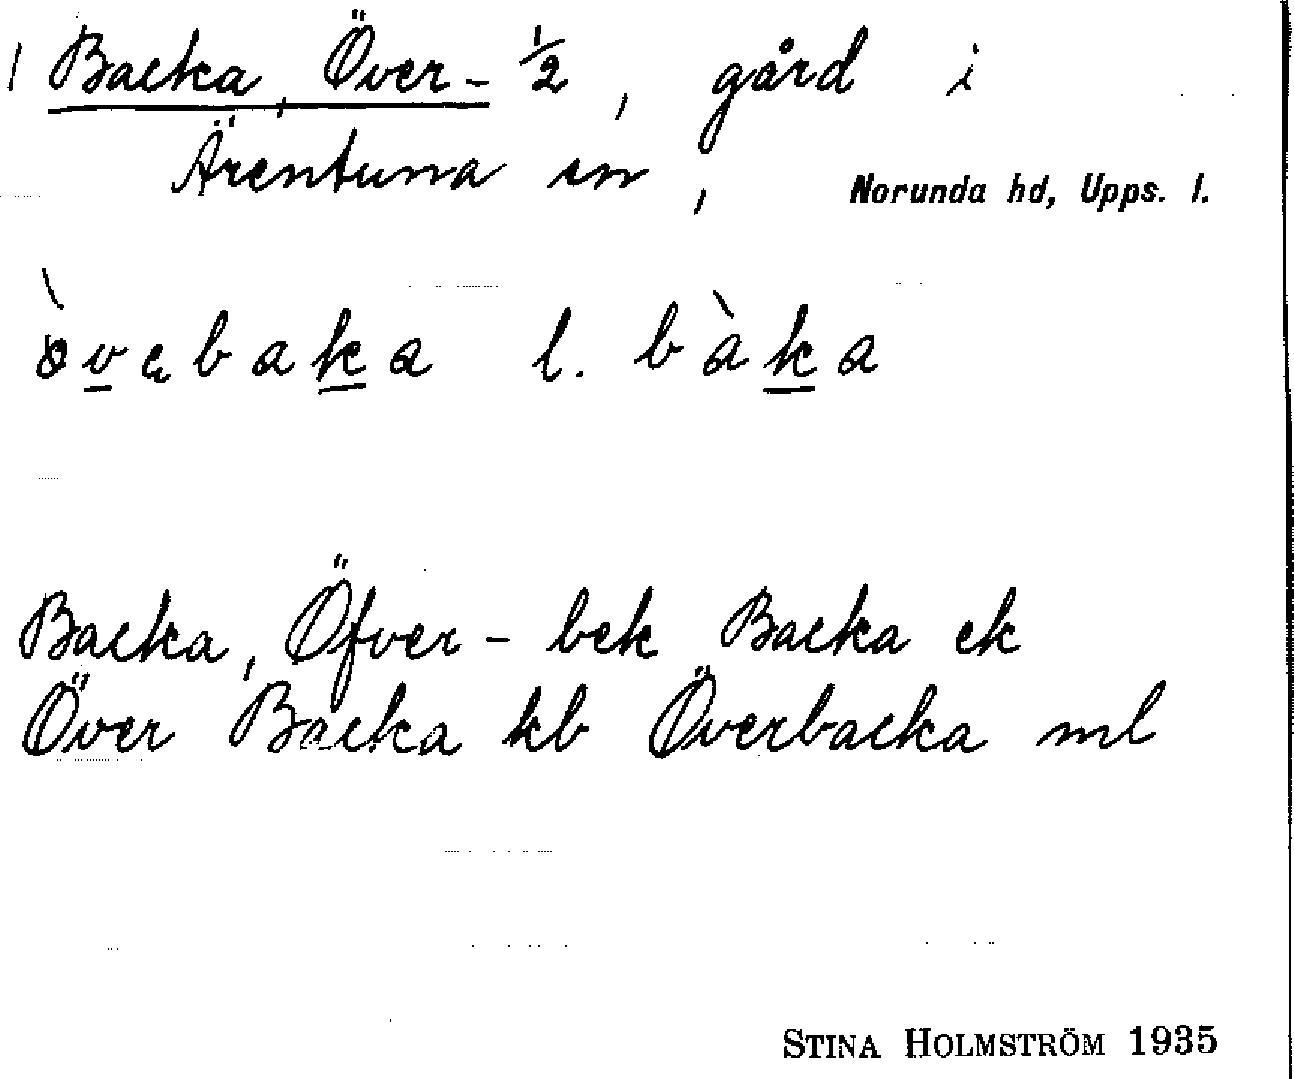 1 Backa, Över- 1/2, gård i
Ärentuna sn, Norunda hd, Upps. l.
ò̀vębaka l. bàka
Backa, Öfver- bek Backa ek
Över Backa kb Överbacka ml
STINA HOLMSTRÖM 1935